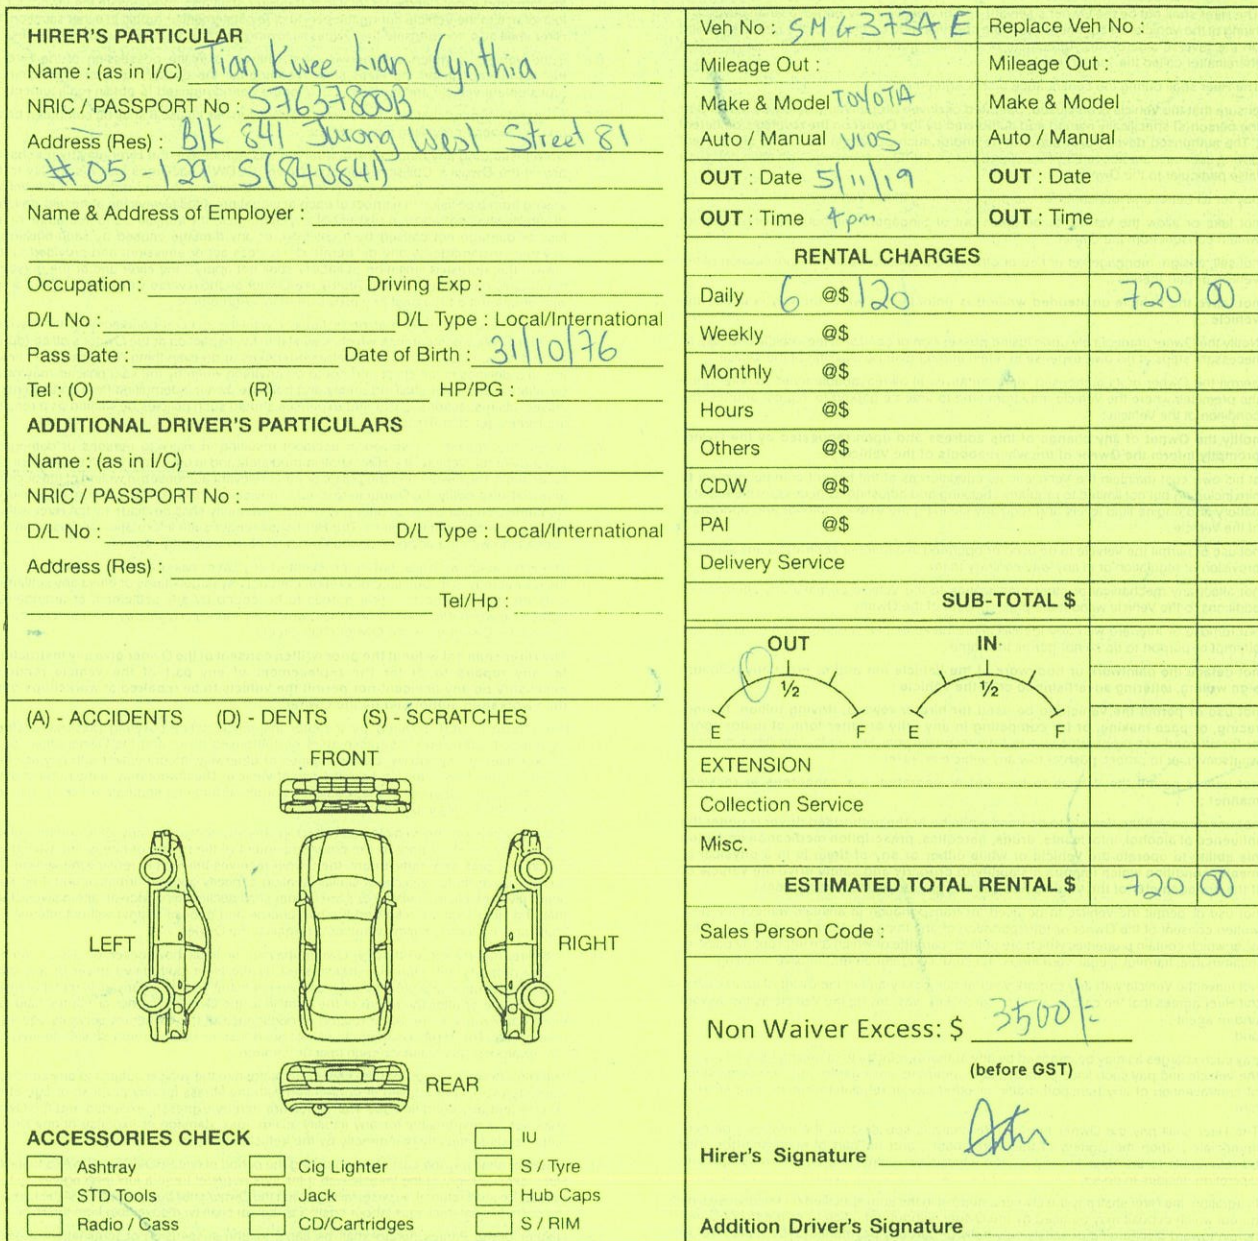 HIRER'S PARTICULAR
Name : (as in I/C) Tian Kwee Lian Cynthia
NRIC / PASSPORT No : S7637800B
Address (Res) : Blk 841 Jurong West Street 81
#05-129 S(840841)
Name & Address of Employer :
Occupation : Driving Exp :
D/L No : D/L Type : Local/International
Pass Date : Date of Birth : 31/10/76
Tel : (O) (R) HP/PG :
ADDITIONAL DRIVER'S PARTICULARS
Name : (as in I/C)
NRIC / PASSPORT No :
D/L No : D/L Type : Local/International
Address (Res) :
Tel/Hp :
(A) - ACCIDENTS (D) - DENTS (S) - SCRATCHES
FRONT
LEFT
RIGHT
REAR
ACCESSORIES CHECK
IU
Ashtray Cig Lighter S / Tyre
STD Tools Jack Hub Caps
Radio / Cass CD/Cartridges S / RIM
Veh No : SMG3734E Replace Veh No :
Mileage Out : Mileage Out :
Make & Model TOYOTA Make & Model
Auto / Manual VIOS Auto / Manual
OUT : Date 5/11/19 OUT : Date
OUT : Time 4pm OUT : Time
RENTAL CHARGES
Daily 6 @$ 120 720 00
Weekly @$
Monthly @$
Hours @$
Others @$
CDW @$
PAI @$
Delivery Service
SUB-TOTAL $
OUT IN
1/2 1/2
E F E F
EXTENSION
Collection Service
Misc.
ESTIMATED TOTAL RENTAL $ 720 00
Sales Person Code :
Non Waiver Excess: $ 3500/=
(before GST)
Hirer's Signature
Addition Driver's Signature